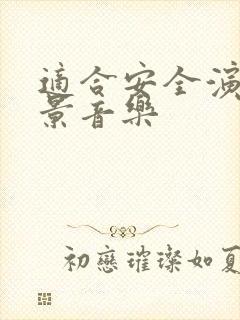 適合安全演
景音樂
初戀璀璨如夏